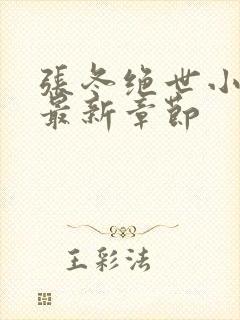 張冬绝世小
最新章節
王彩法